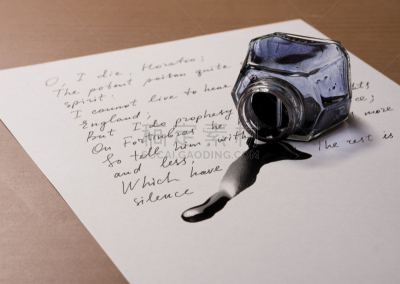 O, I die, Horatio;
The potent poison quite
spirit:
I cannot live to hear
England;
But I do prophesy
On Fortinbras he
So tell him with
and less, more
Which have The rest is
silence